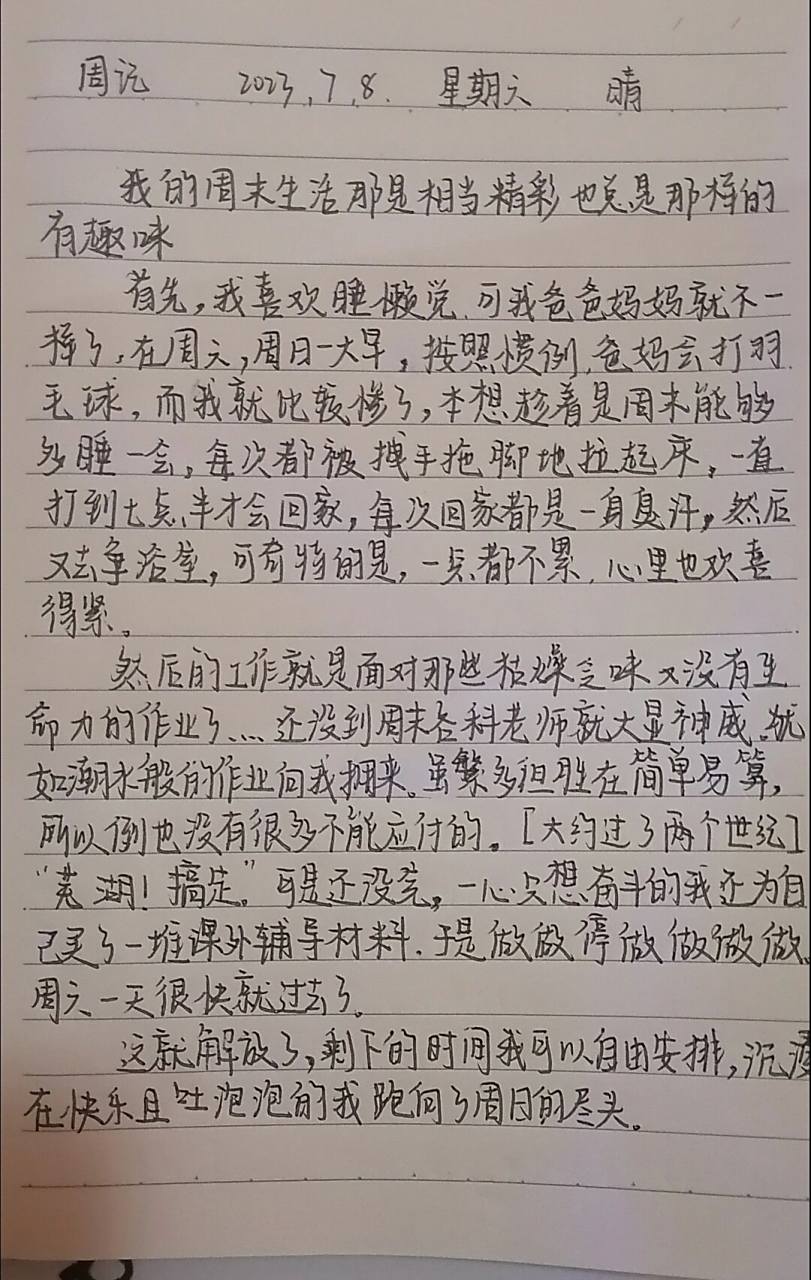 周记 2023.7.8. 星期六 晴
我的周末生活那是相当精彩也总是那样的
有趣味
首先,我喜欢睡懒觉.可我爸爸妈妈就不一
样了.在周六,周日一大早,按照惯例.爸妈会打羽
毛球,而我就比较惨了,本想趁着是周末能够
多睡一会,每次都被拽手拖脚地拉起床,一直
打到七点半才会回家,每次回家都是一身臭汗,然后
又去争浴室,可奇特的是,一点都不累.心里也欢喜
得紧。
然后的工作就是面对那些枯燥乏味又没有生
命力的作业了....还没到周末各科老师就大显神威、犹
如潮水般的作业向我拥来。虽繁多但胜在简单易算,
所以倒也没有很多不能应付的。[大约过了两个世纪]
“芜湖!搞定。”可是还没完,一心只想奋斗的我还为自
己买了一堆课外辅导材料.于是做做停做做做做.
周六一天很快就过去了。
这就解放了,剩下的时间我可以自由安排,沉浸
在快乐且吐泡泡的我跑向了周日的尽头。